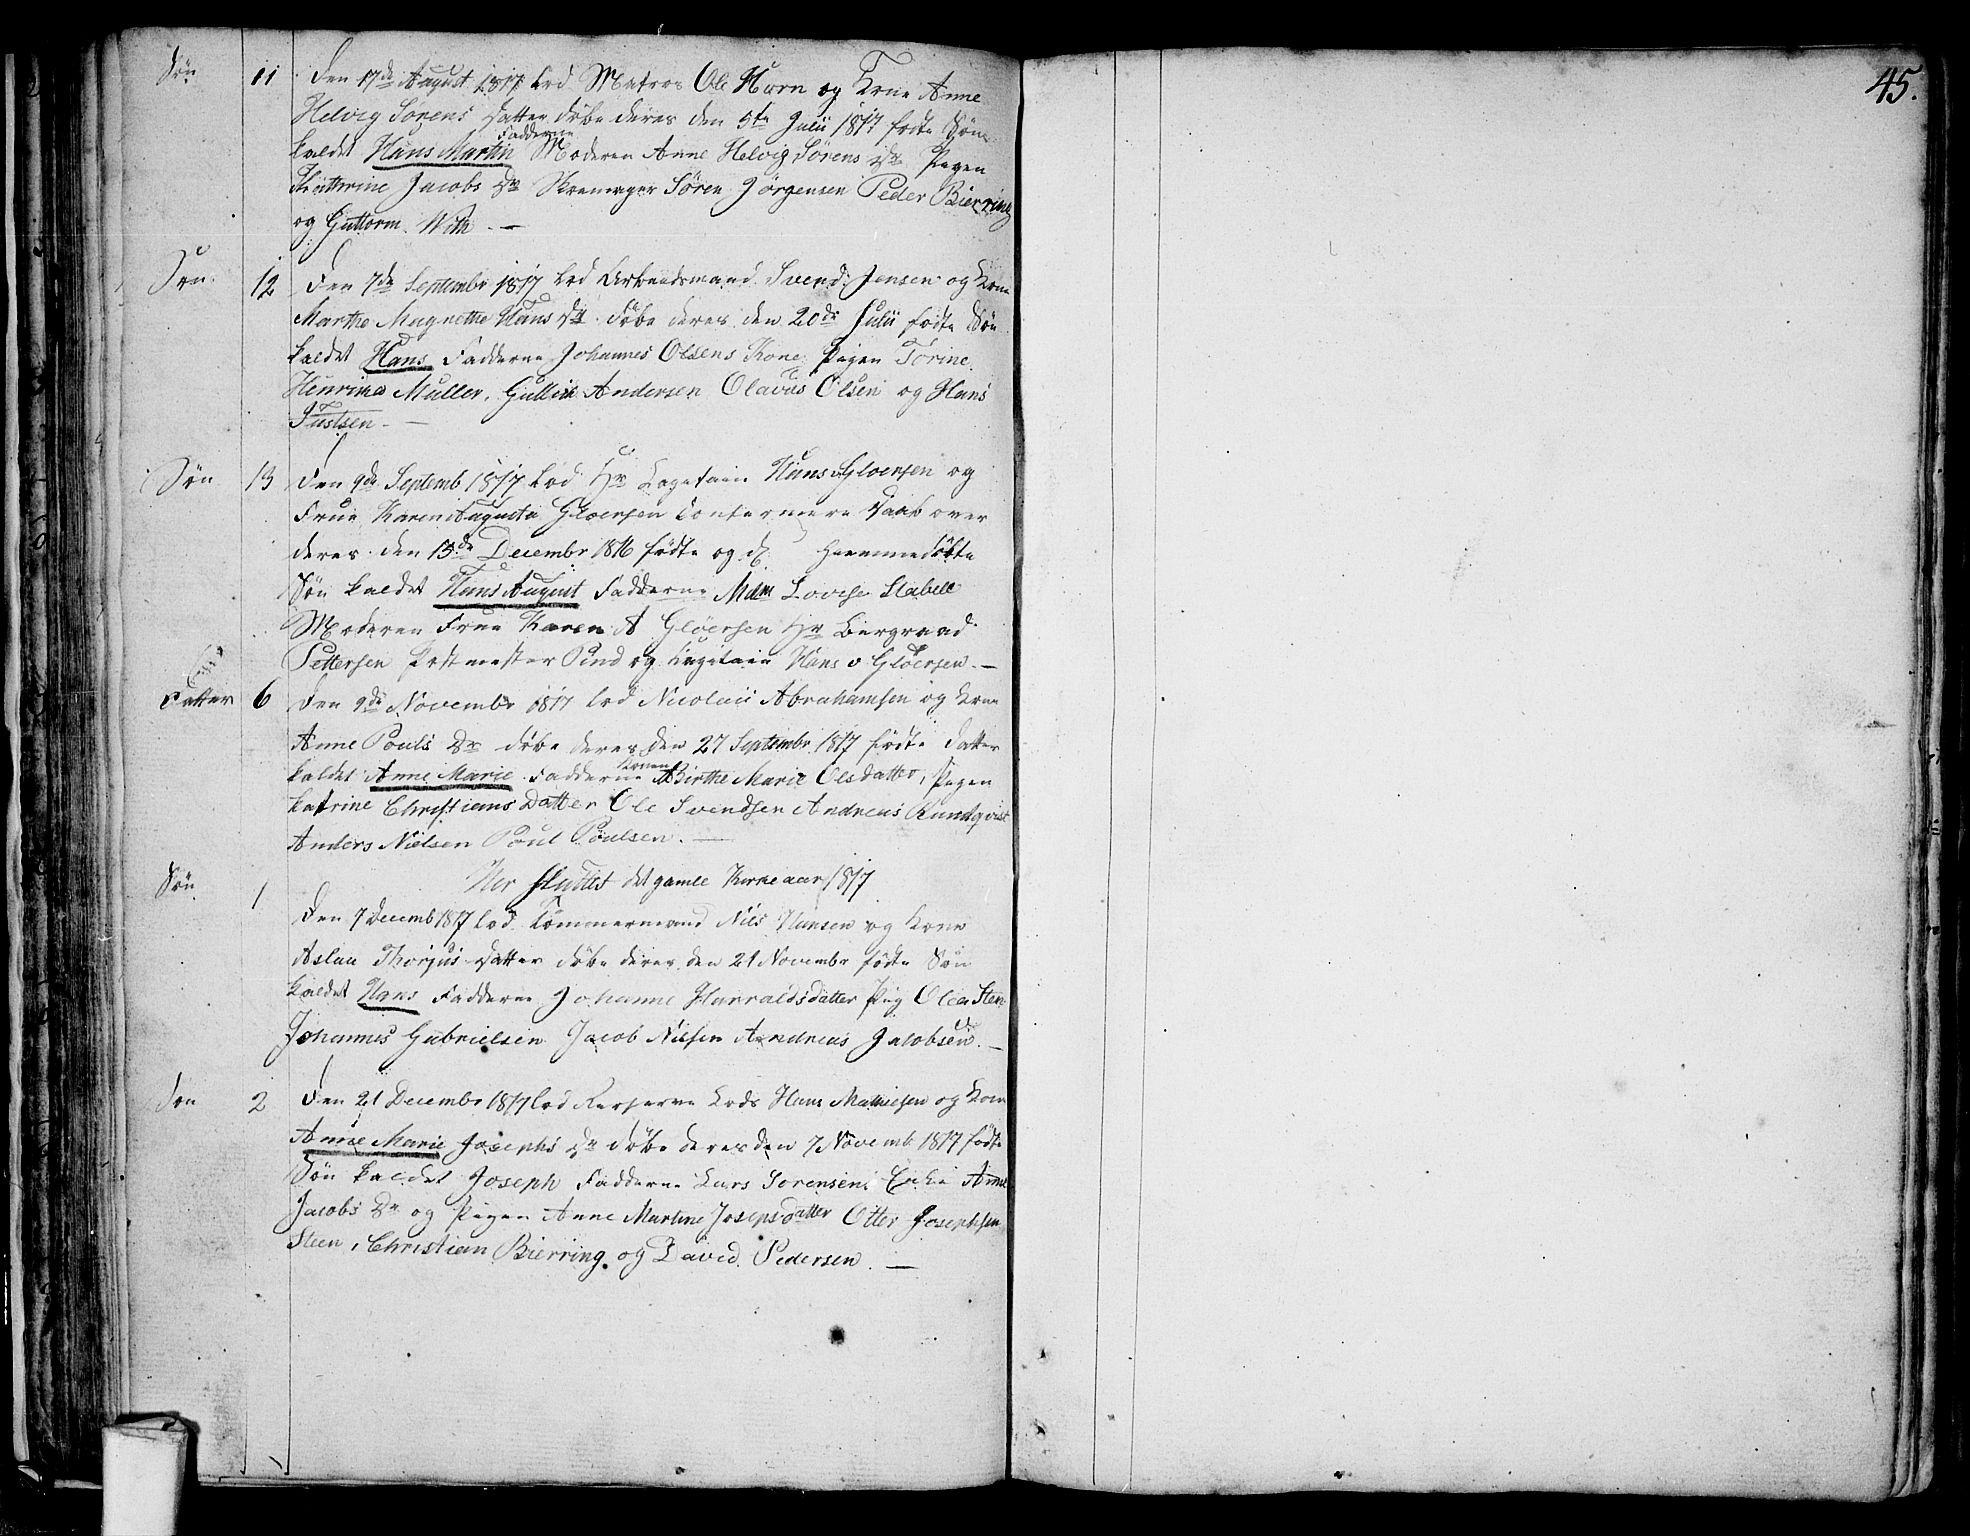 Søn 11 Den 17de August 1817 lod Matros Ole Horn og Kone Anne
Helvig Sørens Datter døbe deres den 5te Julii 1817 fødte Søn
kaldet Hans Martin Fadderne Moderen Anne Helvig Sørens Dr Pigen
Kathrine Jacobs Dr Skomager Søren Jørgensen Peder Bierring
og Guttorm With. —
Søn. 12 Den 7de Septembr 1817 lod Arbeidsmand Svend Jensen og Kone
Marthe Magnethe Hans Dr døbe deres den 20de Julii fødte Søn
kaldet Hans Fadderne Johannes Olsens Kone, Pigen Torine
Henrika Muller, Gullik Andersen Olavus Olsen og Hans
Justsen. —
Søn 13 Den 9de Septemb 1817 lod Hr Capitain Hans Gloersen og
Frue Karen Augusta Gloersen Confermere Daab over
deres den 13de Decembr 1816 fødte og d. hiemmedøbte
Søn kaldet Hans August Fadderne Mdm Lovise Stabell
Moderen Frue Karen A Gløersen Hr Bergraad
Pettersen Postmester Pind og Capitain Hans v Gløersen. —
Datter 6 Den 9de Novembr 1817 lod Nicolaii Abrahamsen og Kone
Anne Pouls Dr døbe deres den 27 Septembr 1817 fødte Datter
kaldet Anne Marie Fadderne Konen Birthe Marie Olsdatter, Pigen
Katrine Christians Datter Ole Svendsen Andreas Rundqvist
Anders Nielsen Poul Poulsen. —
Her sluttet det gamle Kirkeaar 1817
Søn 1 Den 7 Decemb 1817 lod Tømmermand Nils Hansen og Kone
Aslau Thorjus Datter døbe deres den 21 Novembr fødte Søn
kaldet Hans Fadderne Johanne Harraldsdatter Pig Olea Sten
Johannes Gabrielsen Jacob Nielsen Andreas Jacobsen. —
Søn 2 Den 21 Decembr 1817 lod Reserve Lods Hans Mathiesen og Kone
Anne Marie Josephs Dr døbe deres den 7 Novemb 1817 fødte
Søn kaldet Joseph Fadderne Lars Sorensen Enke Anne
Jacobs Dr og Pigen Anne Martine Josepsdatter Otter Josephsen
Steen, Christian Bierring og David Pedersen. —
45.